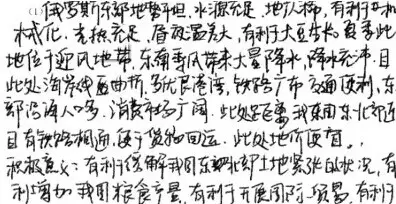 (1)俄罗斯东部地势平坦,水源充足,地广人稀,有利于机
械化.光热充足,昼夜温差大,有利于大豆生长.夏季此
地位于迎风地带,东南季风带来大量降水,降水充沛.且
此处海岸线曲折,多优良港湾,铁路广布交通便利,东
部沿海人口多,消费市场广阔.此处距离我国东北部近
且有铁路相通,便于货物回运.此处地价便宜.
积极意义:有利于缓解我国东北部土地紧张的状况,有
利增加我国粮食产量,有利于开展国际贸易,有利于